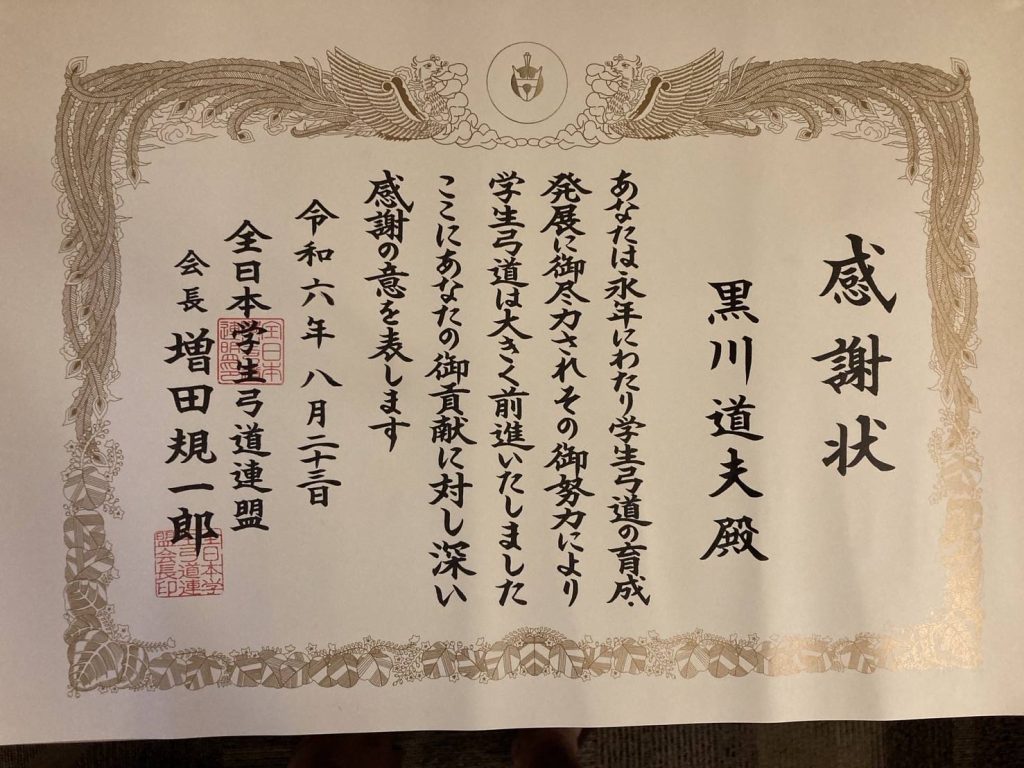 感謝状
黒川道夫殿
あなたは永年にわたり学生弓道の育成・
発展に御尽力されその御努力により
学生弓道は大きく前進いたしました
ここにあなたの御貢献に対し深い
感謝の意を表します
令和六年八月二十三日
全日本学生弓道連盟
会長 増田規一郎